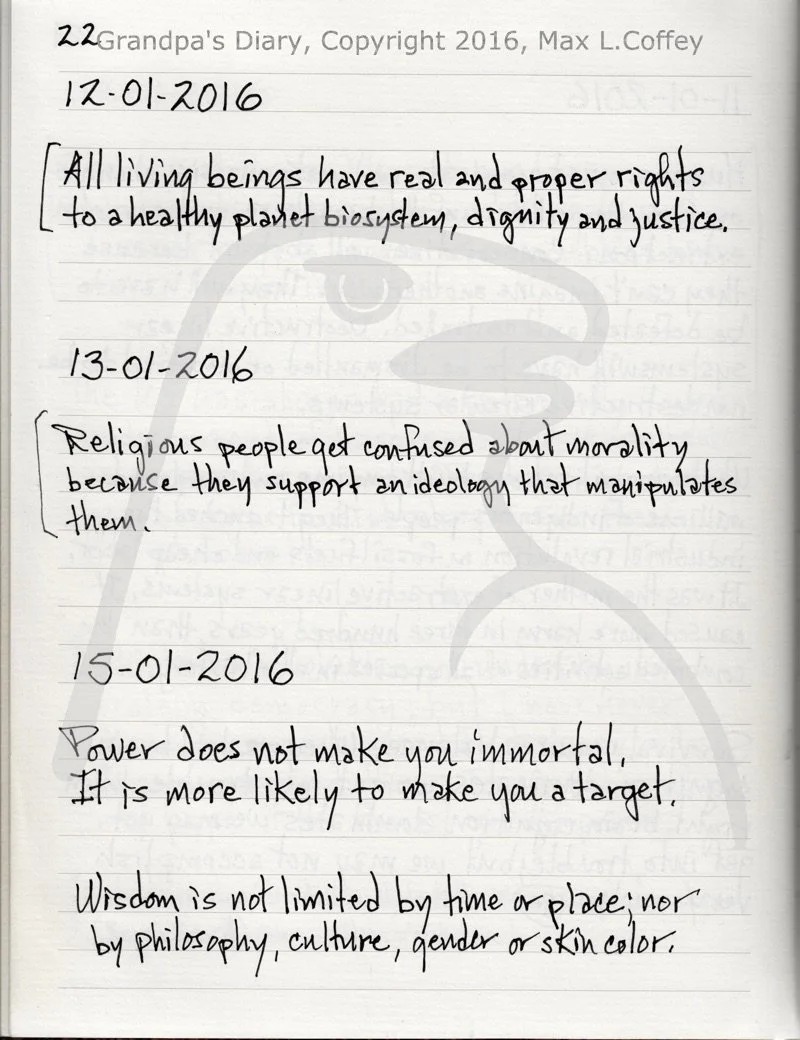 22 Grandpa's Diary, Copyright 2016, Max L.Coffey
12-01-2016
All living beings have real and proper rights
to a healthy planet biosystem, dignity and justice.
13-01-2016
Religious people get confused about morality
because they support an ideology that manipulates
them.
15-01-2016
Power does not make you immortal.
It is more likely to make you a target.
Wisdom is not limited by time or place; nor
by philosophy, culture, gender or skin color.